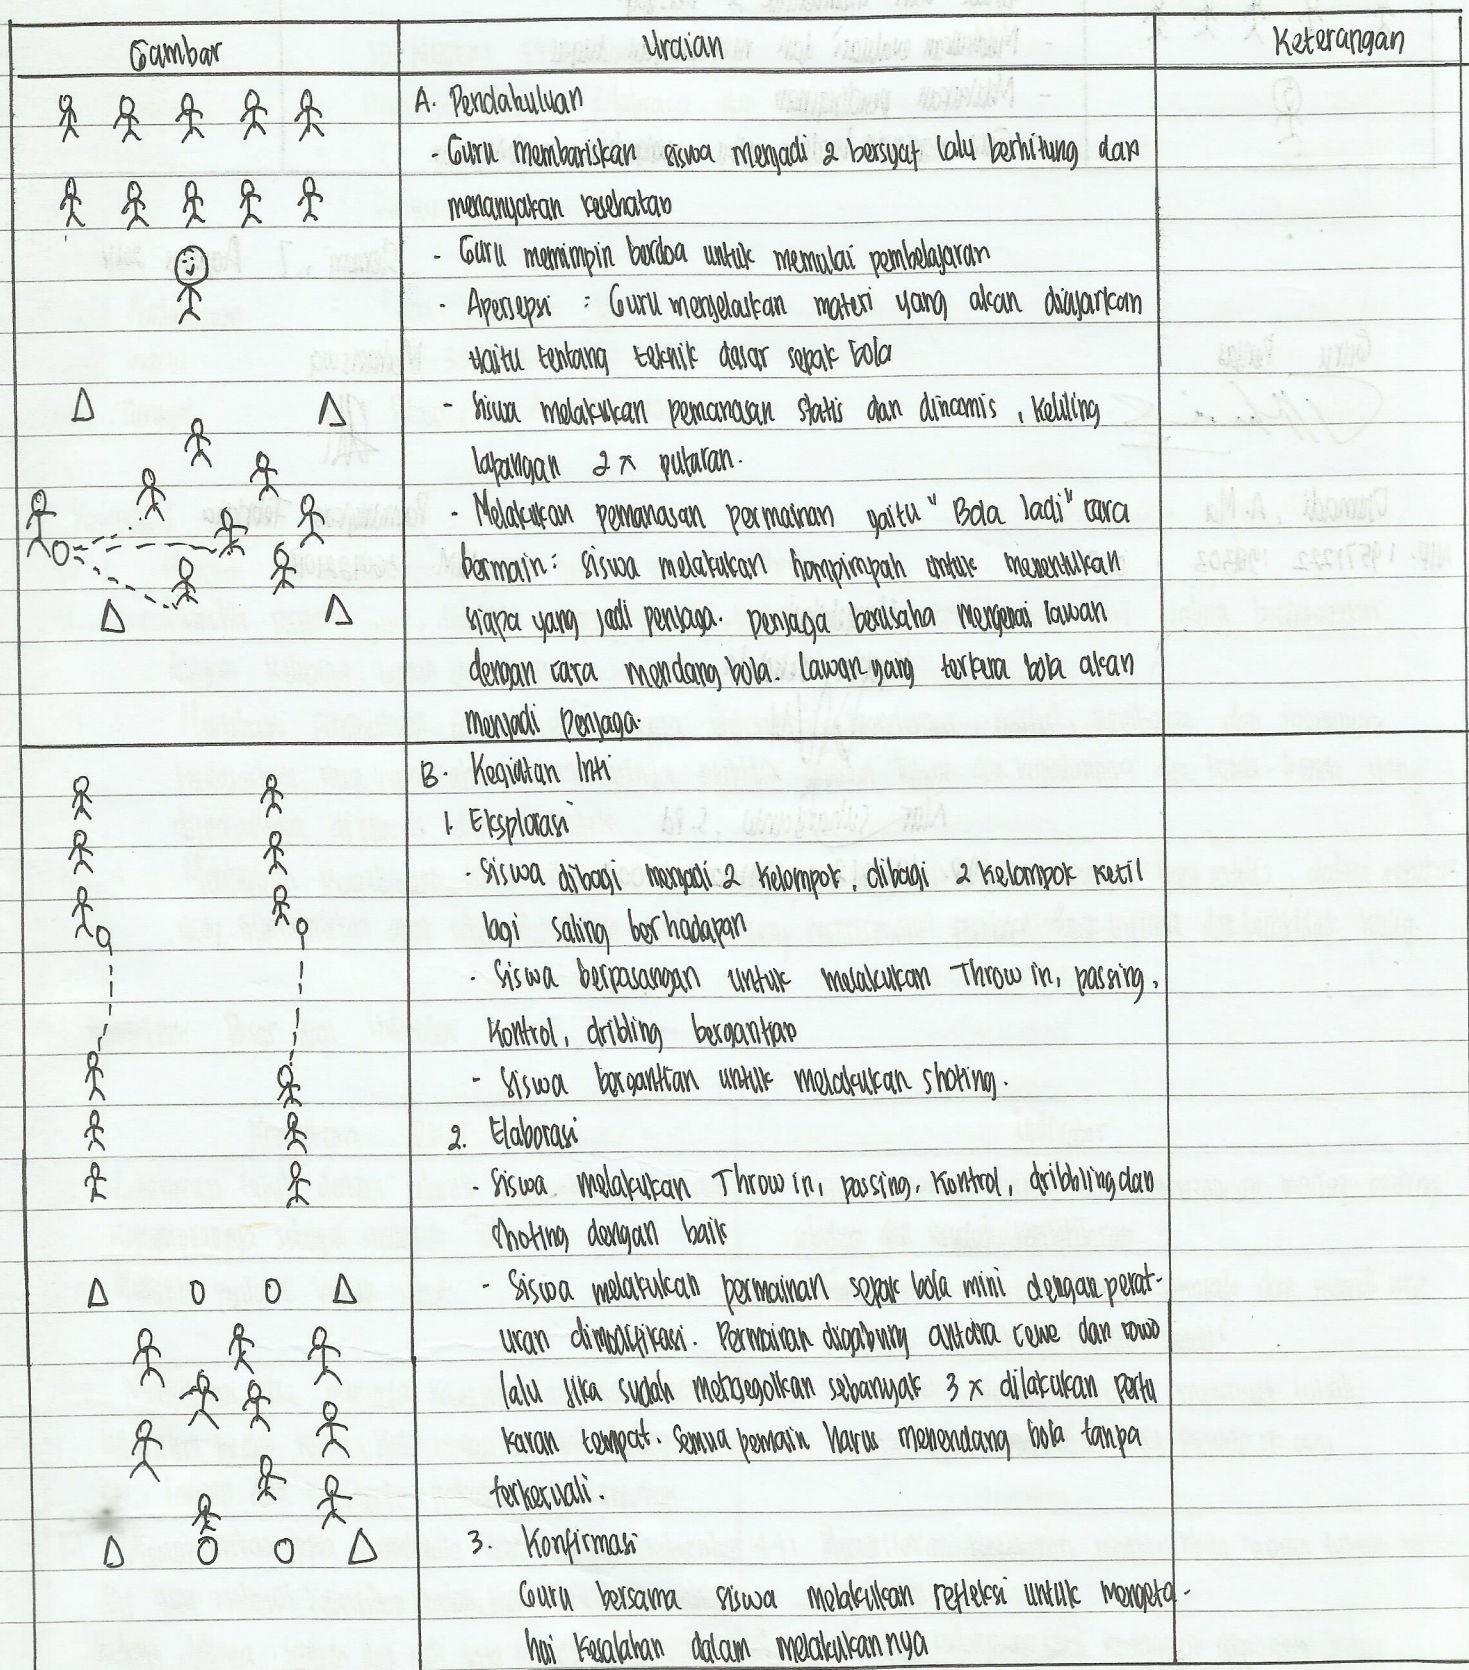 Gambar
Uraian
Keterangan
A. Pendahuluan
- Guru membariskan siswa menjadi 2 bersyaf lalu berhitung dan
menanyakan kesehatan
- Guru memimpin berdoa untuk memulai pembelajaran
- Apersepsi : Guru menjelaskan materi yang akan diajarkan
yaitu tentang teknik dasar sepak bola
- Siswa melakukan pemanasan statis dan dinamis, keliling
lapangan 2 x putaran.
- Melakukan pemanasan permainan yaitu "Bola Jadi" cara
bermain : siswa melakukan hompimpah untuk menentukan
siapa yang jadi penjaga. penjaga berusaha mengenai lawan
dengan cara mendang bola. Lawan yang terkena bola akan
menjadi penjaga.
B. Kegiatan Inti
1. Eksplorasi
- Siswa dibagi menjadi 2 kelompok, dibagi 2 kelompok kecil
lagi saling berhadapan
- Siswa berpasangan untuk melakukan Throw in, passing,
kontrol, dribling bergantian
- Siswa bergantian untuk melakukan shoting.
2. Elaborasi
- Siswa melakukan Throw in, passing, kontrol, dribbling dan
shoting dengan baik
- Siswa melakukan permainan sepak bola mini dengan perat-
uran dimodifikasi. Permainan digabung antara cewe dan cowo
lalu jika sudah mengegolkan sebanyak 3 x dilakukan pertu
karan tempat. Semua pemain harus menendang bola tanpa
terkecuali.
3. Konfirmasi
Guru bersama siswa melakukan refleksi untuk mengeta-
hui kesalahan dalam melakukannya